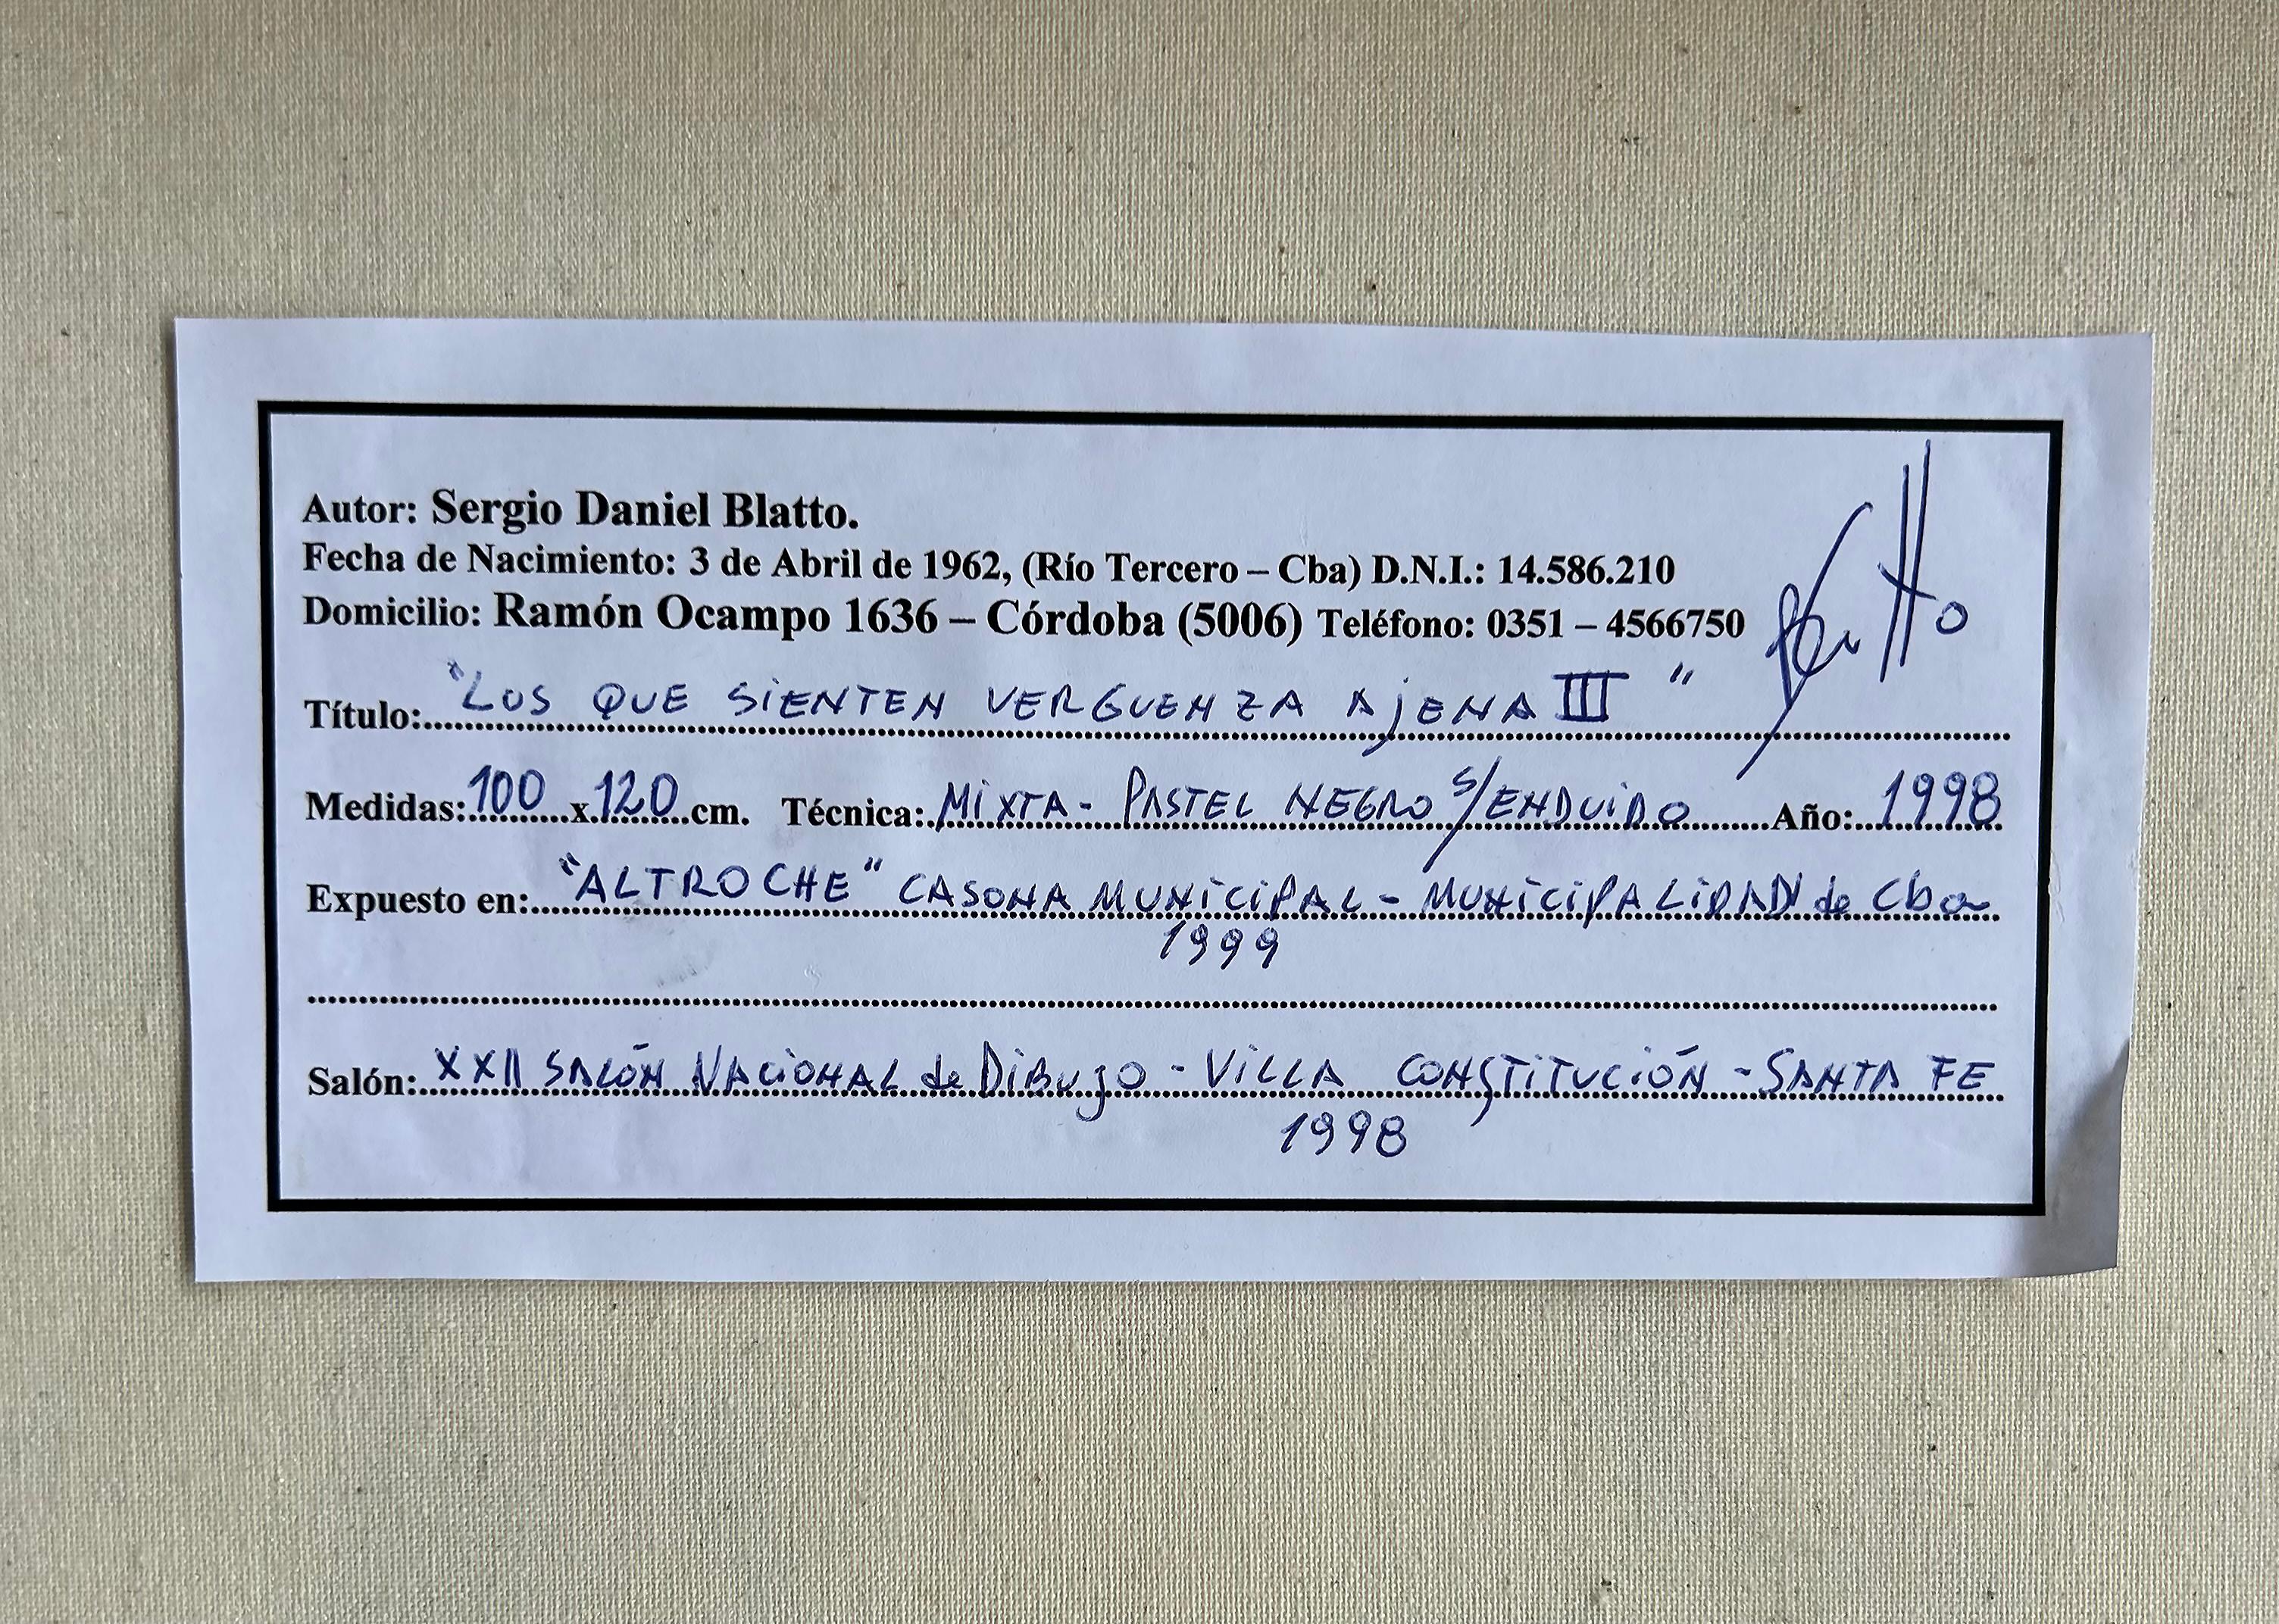 Autor: Sergio Daniel Blatto.
Fecha de Nacimiento: 3 de Abril de 1962, (Río Tercero – Cba) D.N.I.: 14.586.210
Domicilio: Ramón Ocampo 1636 – Córdoba (5006) Teléfono: 0351 – 4566750
Blatto
Título: "LOS QUE SIENTEN VERGUENZA AJENA III"
Medidas: 100 x 120 cm. Técnica: MIXTA - PASTEL NEGRO S/ENDUIDO Año: 1998
Expuesto en: "ALTROCHE" CASONA MUNICIPAL - MUNICIPALIDAD de Cba
1999
Salón: XXII SALÓN NACIONAL de DIBUJO - VILLA CONSTITUCIÓN - SANTA FE
1998